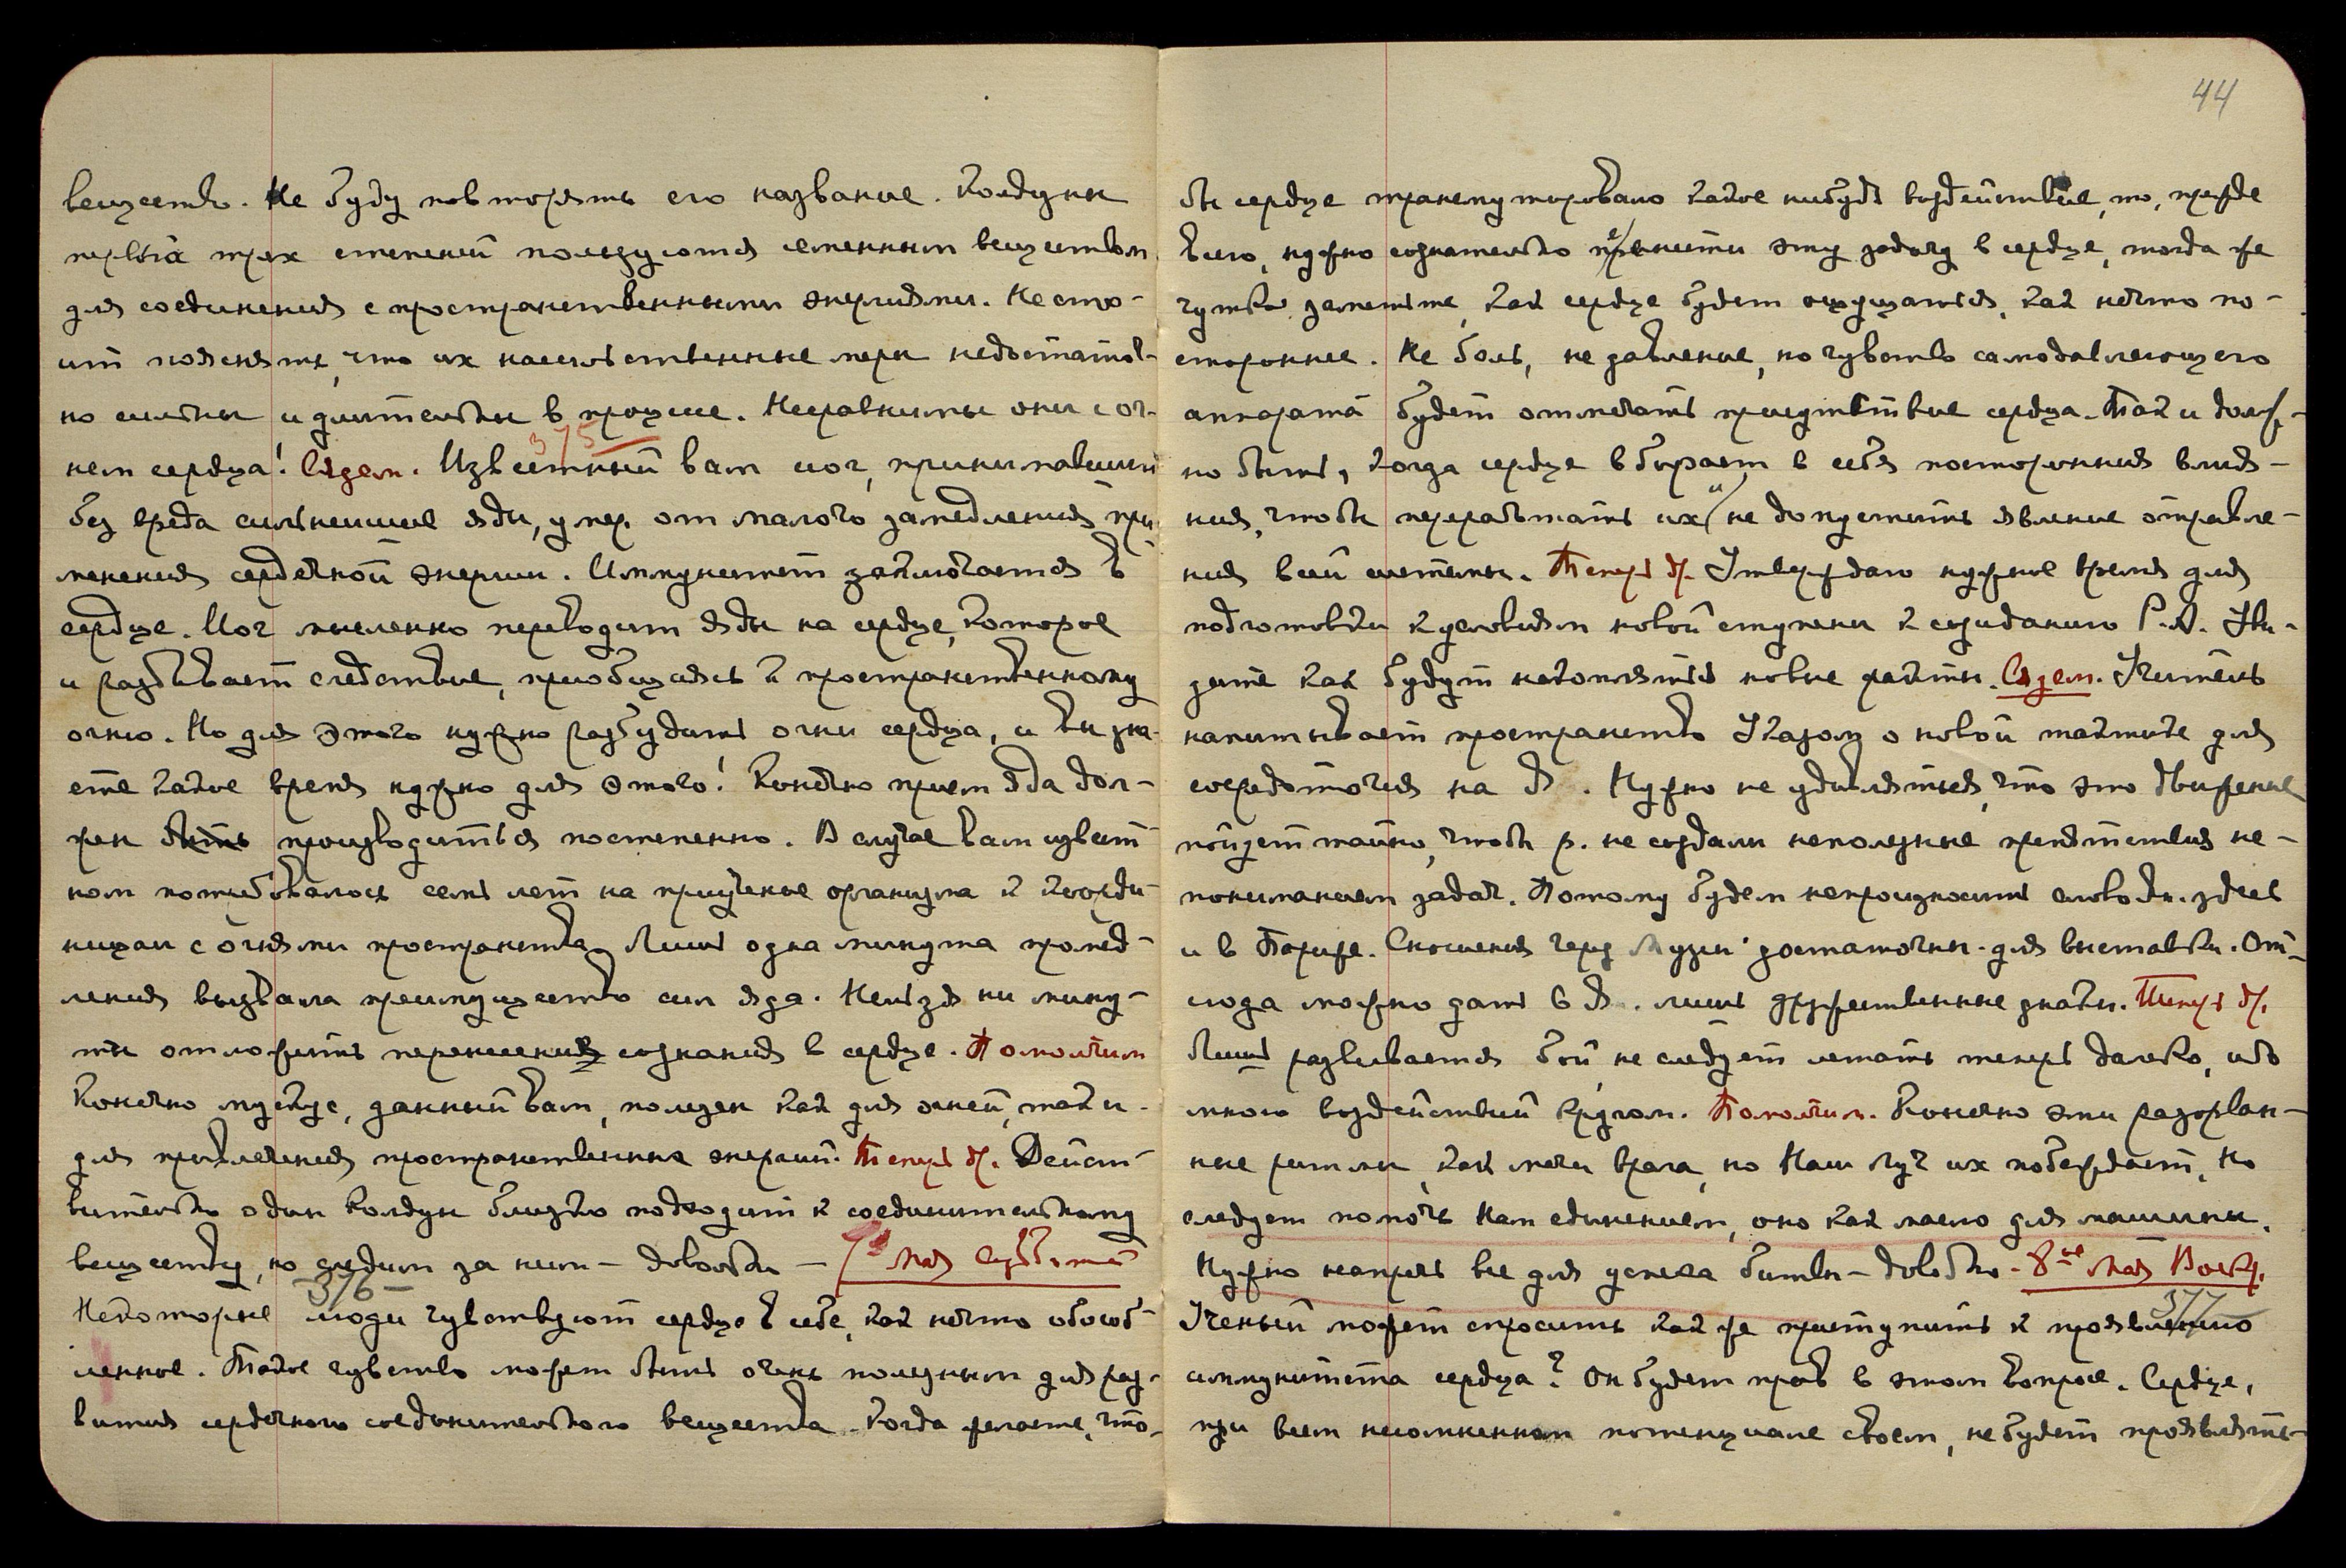 вещество. Не буду повторять его название. Колдуны
первых трех степеней пользуются семенным веществом
для соединения с пространственными энергиями. Не сто-
ит пояснять, что их насильственные меры недостаточ-
но сильны и длительны в процессе. Несравнимы они с ог-
нем сердца! Сядем. Известный вам иог, принимавший
375
без вреда сильнейшие яды, умер от малого замедления при-
менения сердечной энергии. Иммунитет заключается в
сердце. Иог мысленно переводит яды на сердце, которое
и разбивает следствие, приобщаясь к пространственному
огню. Но для этого нужно разбудить огни сердца, и вы зна-
ете какое время нужно для этого! Конечно прием яда дол-
жен быть производиться постепенно. В случае вам извест-
ном потребовалось семь лет на приучение организма к коорди-
нации с огнями пространства. Лишь одна минута промед-
ления вызвала преимущество сил яда. Нельзя ни мину-
ты отложить перенесения сознания в сердце. Помолчим
Конечно мускус, данный вам, полезен как для огней, так и
для привлечения пространственных энергий. Теперь др. Дейст-
вительно один колдун близко подходит к соединительному
веществу, но следим за ним – довольно – 7ое Мая Суббота
376 –
Некоторые люди чувствуют сердце в себе, как нечто обособ-
ленное. Такое чувство может быть очень полезным для раз-
вития сердечного соединительного вещества. Когда желаете, что-
44
бы сердце трансмутировало какое нибудь воздействие, то, прежде
всего, нужно сознательно пренести эту задачу в сердце, тогда же
чутко заметьте, как сердце будет ощущаться, как нечто по-
стороннее. Не боль, не давление, но чувство самодавлеющего
аппарата будет отмечать присутствие сердца. Так и долж-
но быть, когда сердце вбирает в себя посторонния влия-
ния, чтобы переработать их и не допустить явление отравле-
ния всей системы. Теперь др. Утверждаю нужное время для
подготовки к условиям новой ступени к созиданию Р.А. Уви-
дите как будут накопляться новые факты. Сядем. Учитель
напитывает пространство Указом о новой тактике для
сосредоточия на А . Нужно не удивляться, что это движение
пойдет тайно, чтобы р. не создали неполезные препятствия не-
пониманием задач. Потому будем непроизносить слово Ан. здесь
и в Париже. Сношения через Музеи достаточны для выставки. От-
сюда можно дать в А . лишь дружественные знаки. Теперь др.
Лишь развивается бой, не следует летать теперь далеко, ибо
много воздействий кругом. Помолчим. Конечно эти разорван-
ные ритмы, как мечи врага, но Наш луч их побеждает, но
следует помочь Нам единением, оно как масло для машины.
Нужно напречь все для успеха битвы – довольно – 8ое Мая Воскр.
377
Ученый может спросить как же приступить к проявлению
иммунитета сердца? Он будет прав в этом вопросе. Сердце,
при всем несомненном потенциале своем, не будет проявлять-